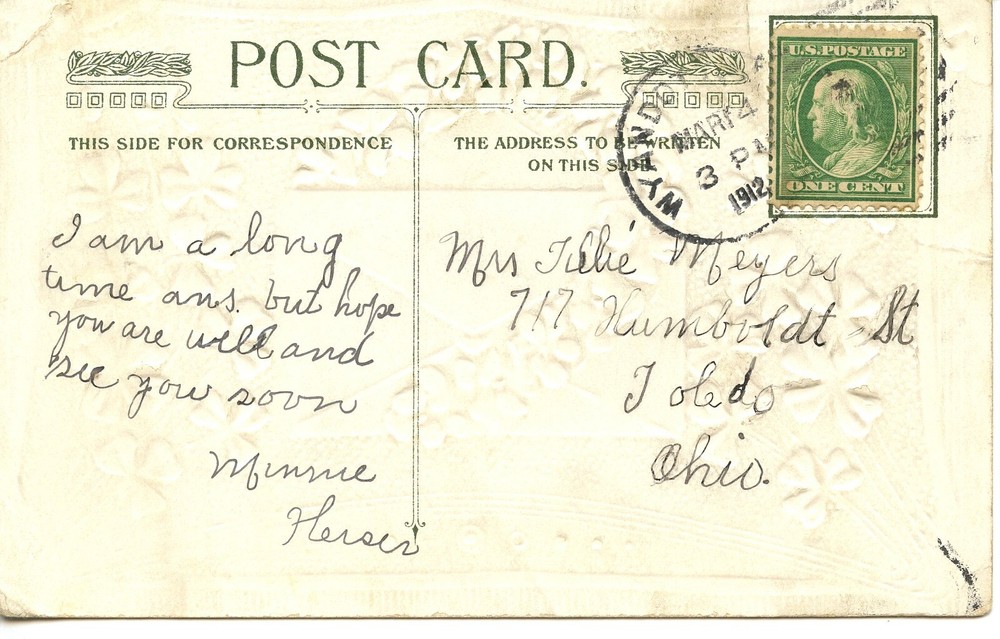 POST CARD.
THIS SIDE FOR CORRESPONDENCE
THE ADDRESS TO BE WRITTEN
ON THIS SIDE
U.S. POSTAGE
ONE CENT
MAR 14
3 PM
1912
I am a long
time ans. but hope
you are well and
see you soon
Minnie
Mrs Tillie Meyers
717 Humboldt St
Toledo
Ohio.